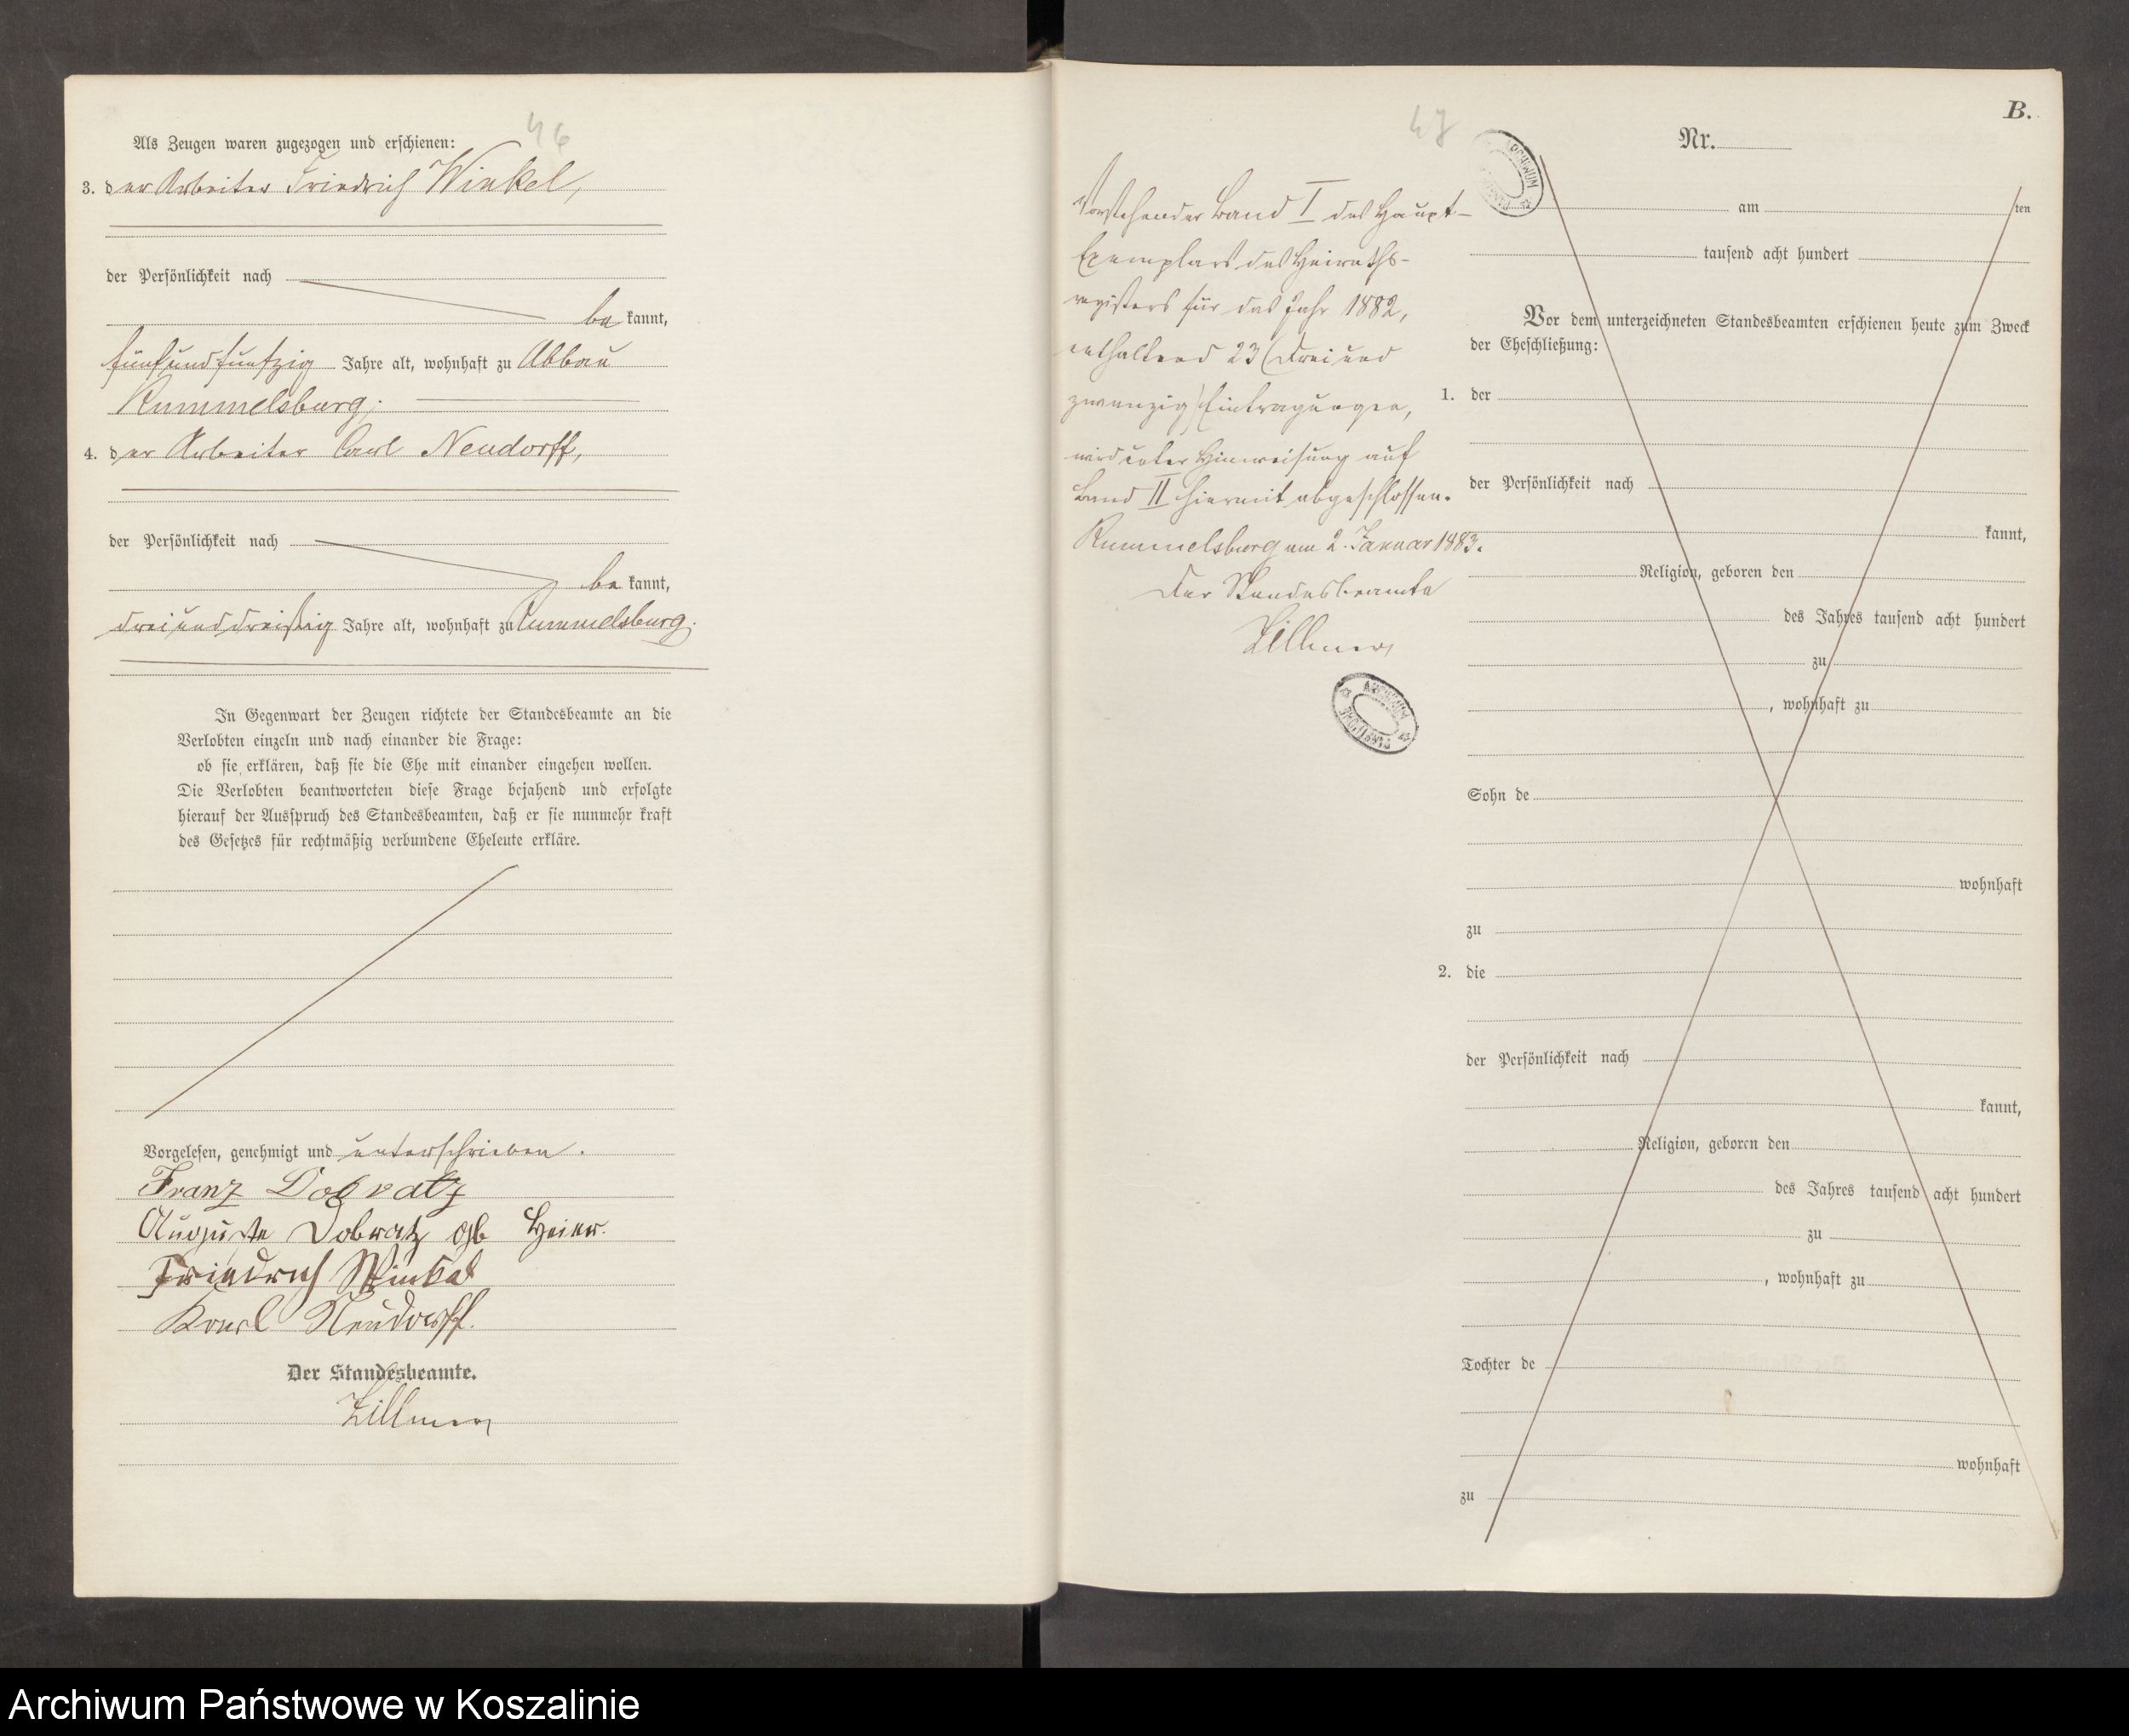 46
Als Zeugen waren zugezogen und erschienen:
3. der Arbeiter Friedrich Winkel,
der Persönlichkeit nach
be kannt,
fünfundfünfzig Jahre alt, wohnhaft zu Abbau
Rummelsburg;
4. der Arbeiter Carl Neudorff,
der Persönlichkeit nach
be kannt,
dreiunddreißig Jahre alt, wohnhaft zu Rummelsburg.
In Gegenwart der Zeugen richtete der Standesbeamte an die
Verlobten einzeln und nach einander die Frage:
ob sie erklären, daß sie die Ehe mit einander eingehen wollen.
Die Verlobten beantworteten diese Frage bejahend und erfolgte
hierauf der Ausspruch des Standesbeamten, daß er sie nunmehr kraft
des Gesetzes für rechtmäßig verbundene Eheleute erkläre.
Vorgelesen, genehmigt und unterschrieben.
Franz Dobratz
Auguste Dobratz gb Heier.
Friedrich Winkel
Karl Neudorff.
Der Standesbeamte.
Zillmer
47
Vorstehender Band I des Haupt-
Exemplars des Heiraths-
registers für das Jahr 1882,
enthaltend 23 (drei und
zwanzig) Eintragungen,
wird unter Hinweisung auf
Band II hiermit abgeschlossen.
Rummelsburg am 2. Januar 1883.
Der Standesbeamte
Zillmer
ARCHIWUM
B.
Nr.
ARCHIWUM
am ten
tausend acht hundert
Vor dem unterzeichneten Standesbeamten erschienen heute zum Zweck
der Eheschließung:
1. der
der Persönlichkeit nach
kannt,
Religion, geboren den
des Jahres tausend acht hundert
zu
, wohnhaft zu
Sohn de
wohnhaft
zu
2. die
der Persönlichkeit nach
kannt,
Religion, geboren den
des Jahres tausend acht hundert
zu
, wohnhaft zu
Tochter de
wohnhaft
zu
Archiwum Państwowe w Koszalinie